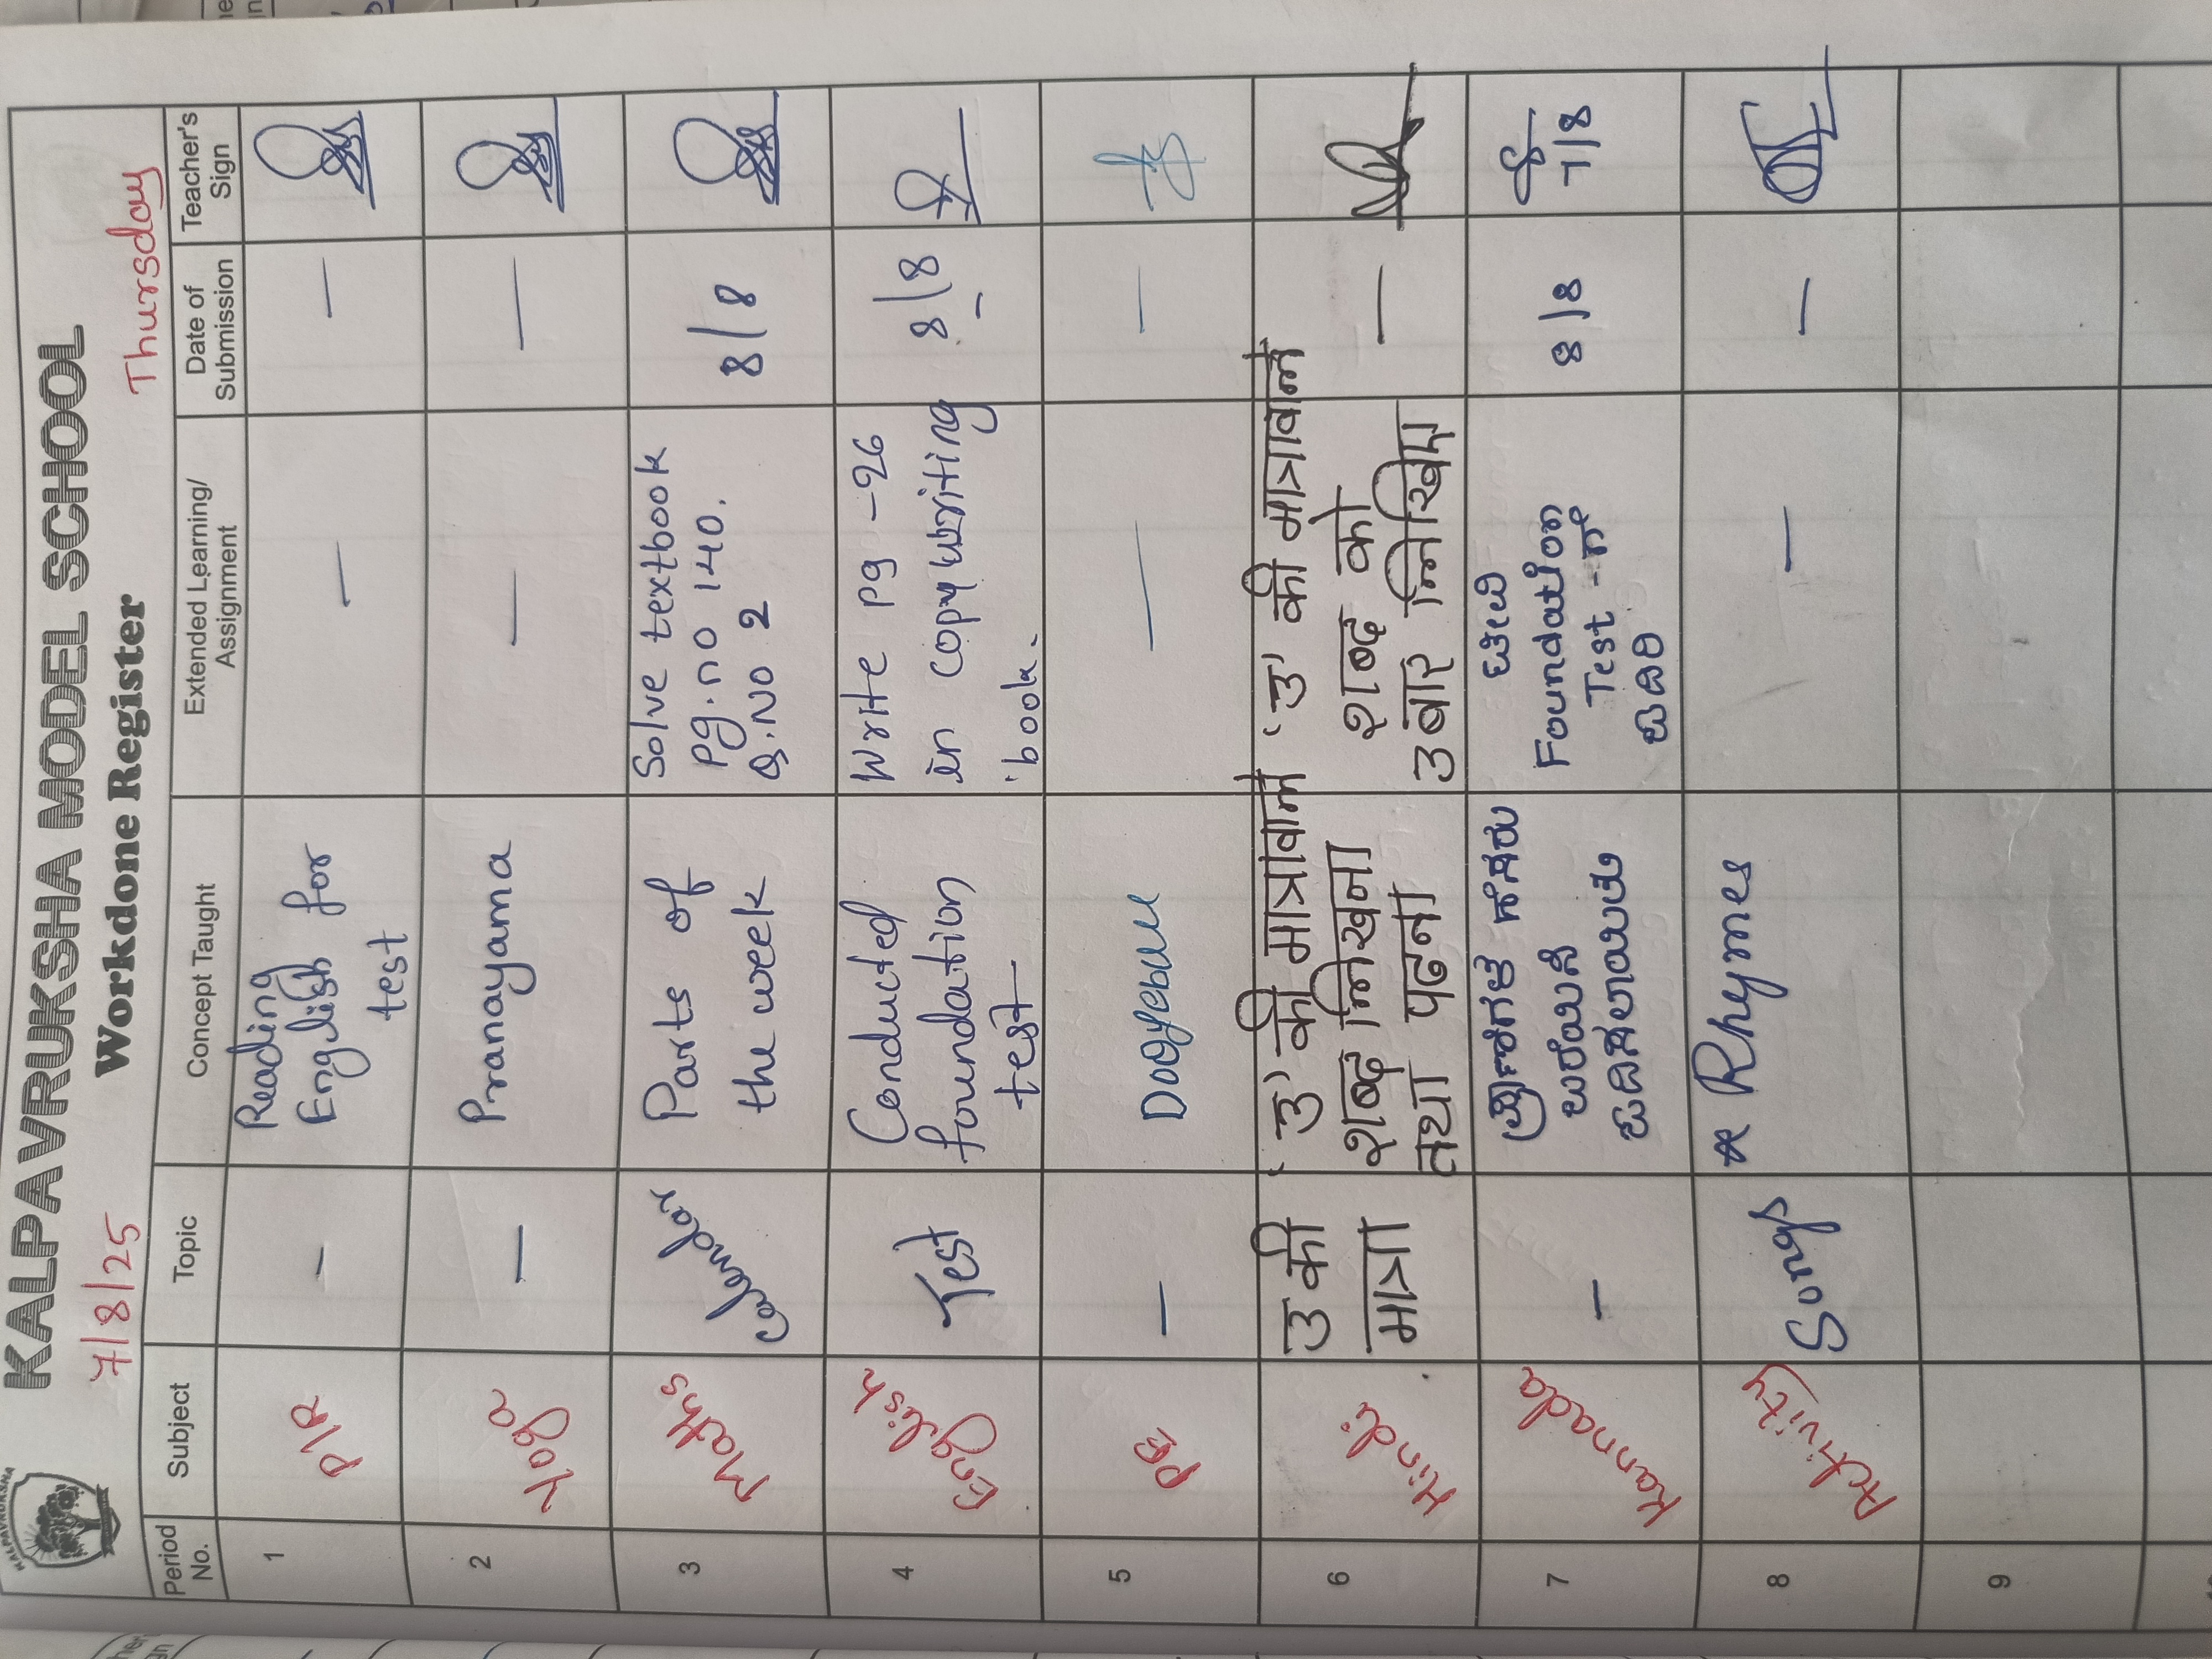 KALPAVRUKSHA MODEL SCHOOL
7/8/25 Workdone Register Thursday
Period No. Subject Topic Concept Taught Extended Learning/ Assignment Date of Submission Teacher's Sign
1 PIR — Reading
English for
test — —
2 Yoga — Pranayama — —
3 Maths Calendar Parts of
the week Solve textbook
pg.no 140.
Q.No 2 8/8
4 English Test Conducted
foundation
test Write pg-26
in copywriting
book. 8/8
5 PE — — —
6 Hindi उ की
मात्रा 'उ' की मात्रावाले
शब्द लिखना
तथा पढना 'उ' की मात्रावाले
शब्द को
3 बार लिखिए —
7 Kannada — ಹೆಸರು
ಬರೆಯಿಸಿ
ಓದಿಸಲಾಯಿತು
Foundation
Test -ಗೆ
ಓದಿರಿ 8/8 7/8
8 Activity Songs * Rhymes — —
9